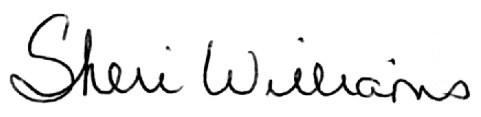 Sheri Williams